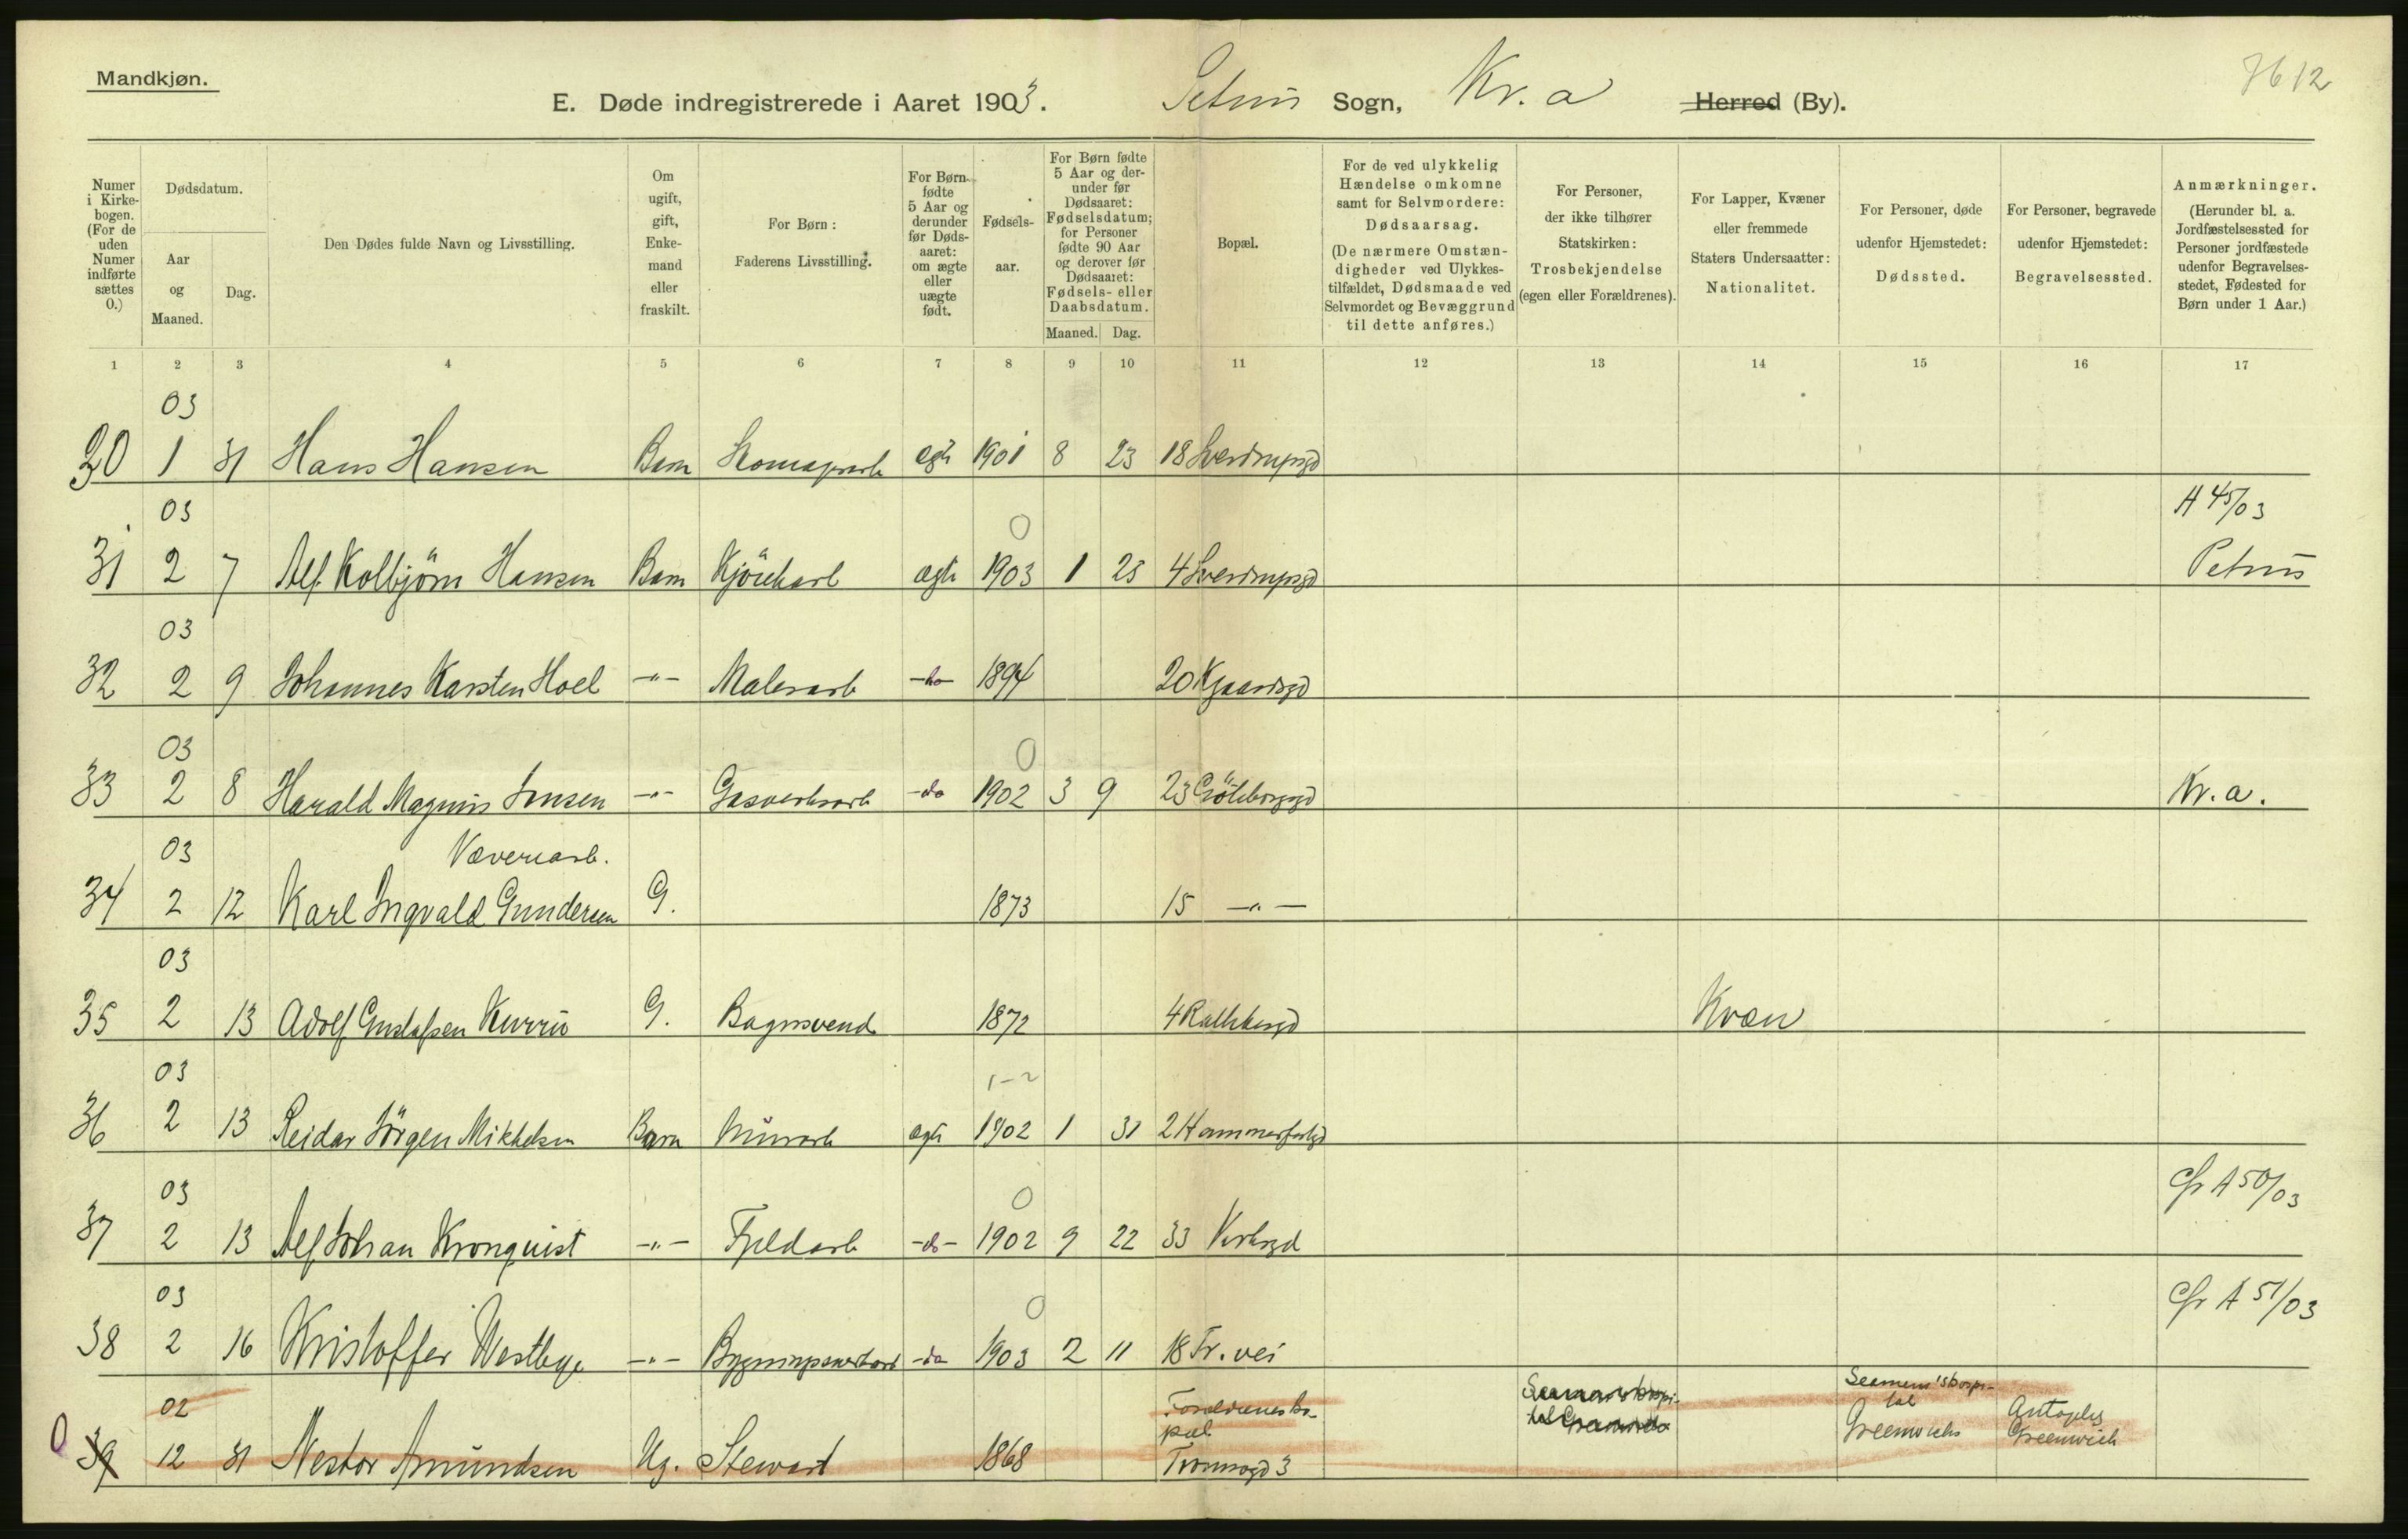 Mandkjøn.
E. Døde indregistrerede i Aaret 1903. Petrus Sogn, Kr.a Herred (By).
7612
Numer i Kirkebogen. (For de uden Numer indførte sættes 0.)
Dødsdatum.
Aar og Maaned.
Dag.
Den Dødes fulde Navn og Livsstilling.
Om ugift, gift, Enkemand eller fraskilt.
For Børn: Faderens Livsstilling.
For Børn fødte 5 Aar og derunder før Dødsaaret: om ægte eller uægte født.
Fødselsaar.
For Børn fødte 5 Aar og derunder før Dødsaaret: Fødselsdatum; for Personer fødte 90 Aar og derover før Dødsaaret: Fødsels- eller Daabsdatum.
Maaned. Dag.
Bopæl.
For de ved ulykkelig Hændelse omkomne samt for Selvmordere: Dødsaarsag. (De nærmere Omstændigheder ved Ulykkestilfældet, Dødsmaade ved Selvmordet og Bevæggrund til dette anføres.)
For Personer, der ikke tilhører Statskirken: Trosbekjendelse (egen eller Forældrenes).
For Lapper, Kvæner eller fremmede Staters Undersaatter: Nationalitet.
For Personer, døde udenfor Hjemstedet: Dødssted.
For Personer, begravede udenfor Hjemstedet: Begravelsessted.
Anmærkninger. (Herunder bl. a. Jordfæstelsessted for Personer jordfæstede udenfor Begravelsesstedet, Fødested for Børn under 1 Aar.)
1 2 3 4 5 6 7 8 9 10 11 12 13 14 15 16 17
03
30 1 31 Hans Hansen Barn egte 1901 8 23 18 Sverdrupsgd
03 0 A 45/03
31 2 7 Alf Kolbjörn Hansen Barn ægte 1903 1 23 4 Sverdrupsgd Petrus
03
32 2 9 Johannes Karsten Hoel -"- Malerarb -do- 1894 20
03 0
33 2 8 Harald Magnus Jensen -"- Gasverksarb -do 1902 3 9 23 Göteborggd Kr.a.
03 Væveriarb.
34 2 12 Karl Ingvald Gundersen G. 1873 15 -"-
03
35 2 13 Adolf Gustafsen G. Bagersvend 1872 4 Kvæn
03 1-2
36 2 13 Reidar Jörgen Mikkelsen Barn Murarb ægte 1902 1 31 2 Hammerfestgd
03 0 Cfr A 50/03
37 2 13 Alf Johan Kronquist -"- Fjeldarb -do- 1902 9 22 33
03 0 Cfr A 51/03
38 2 16 Kristoffer -"- -do 1903 2 11 18 Tr.vei
02 Forældrenes Bopæl Seamen's hospital Antagelig
0 39 12 31 Nestor Amundsen Ug. Stewart 1868 Tromsøgd 3 Greenwich Greenwich